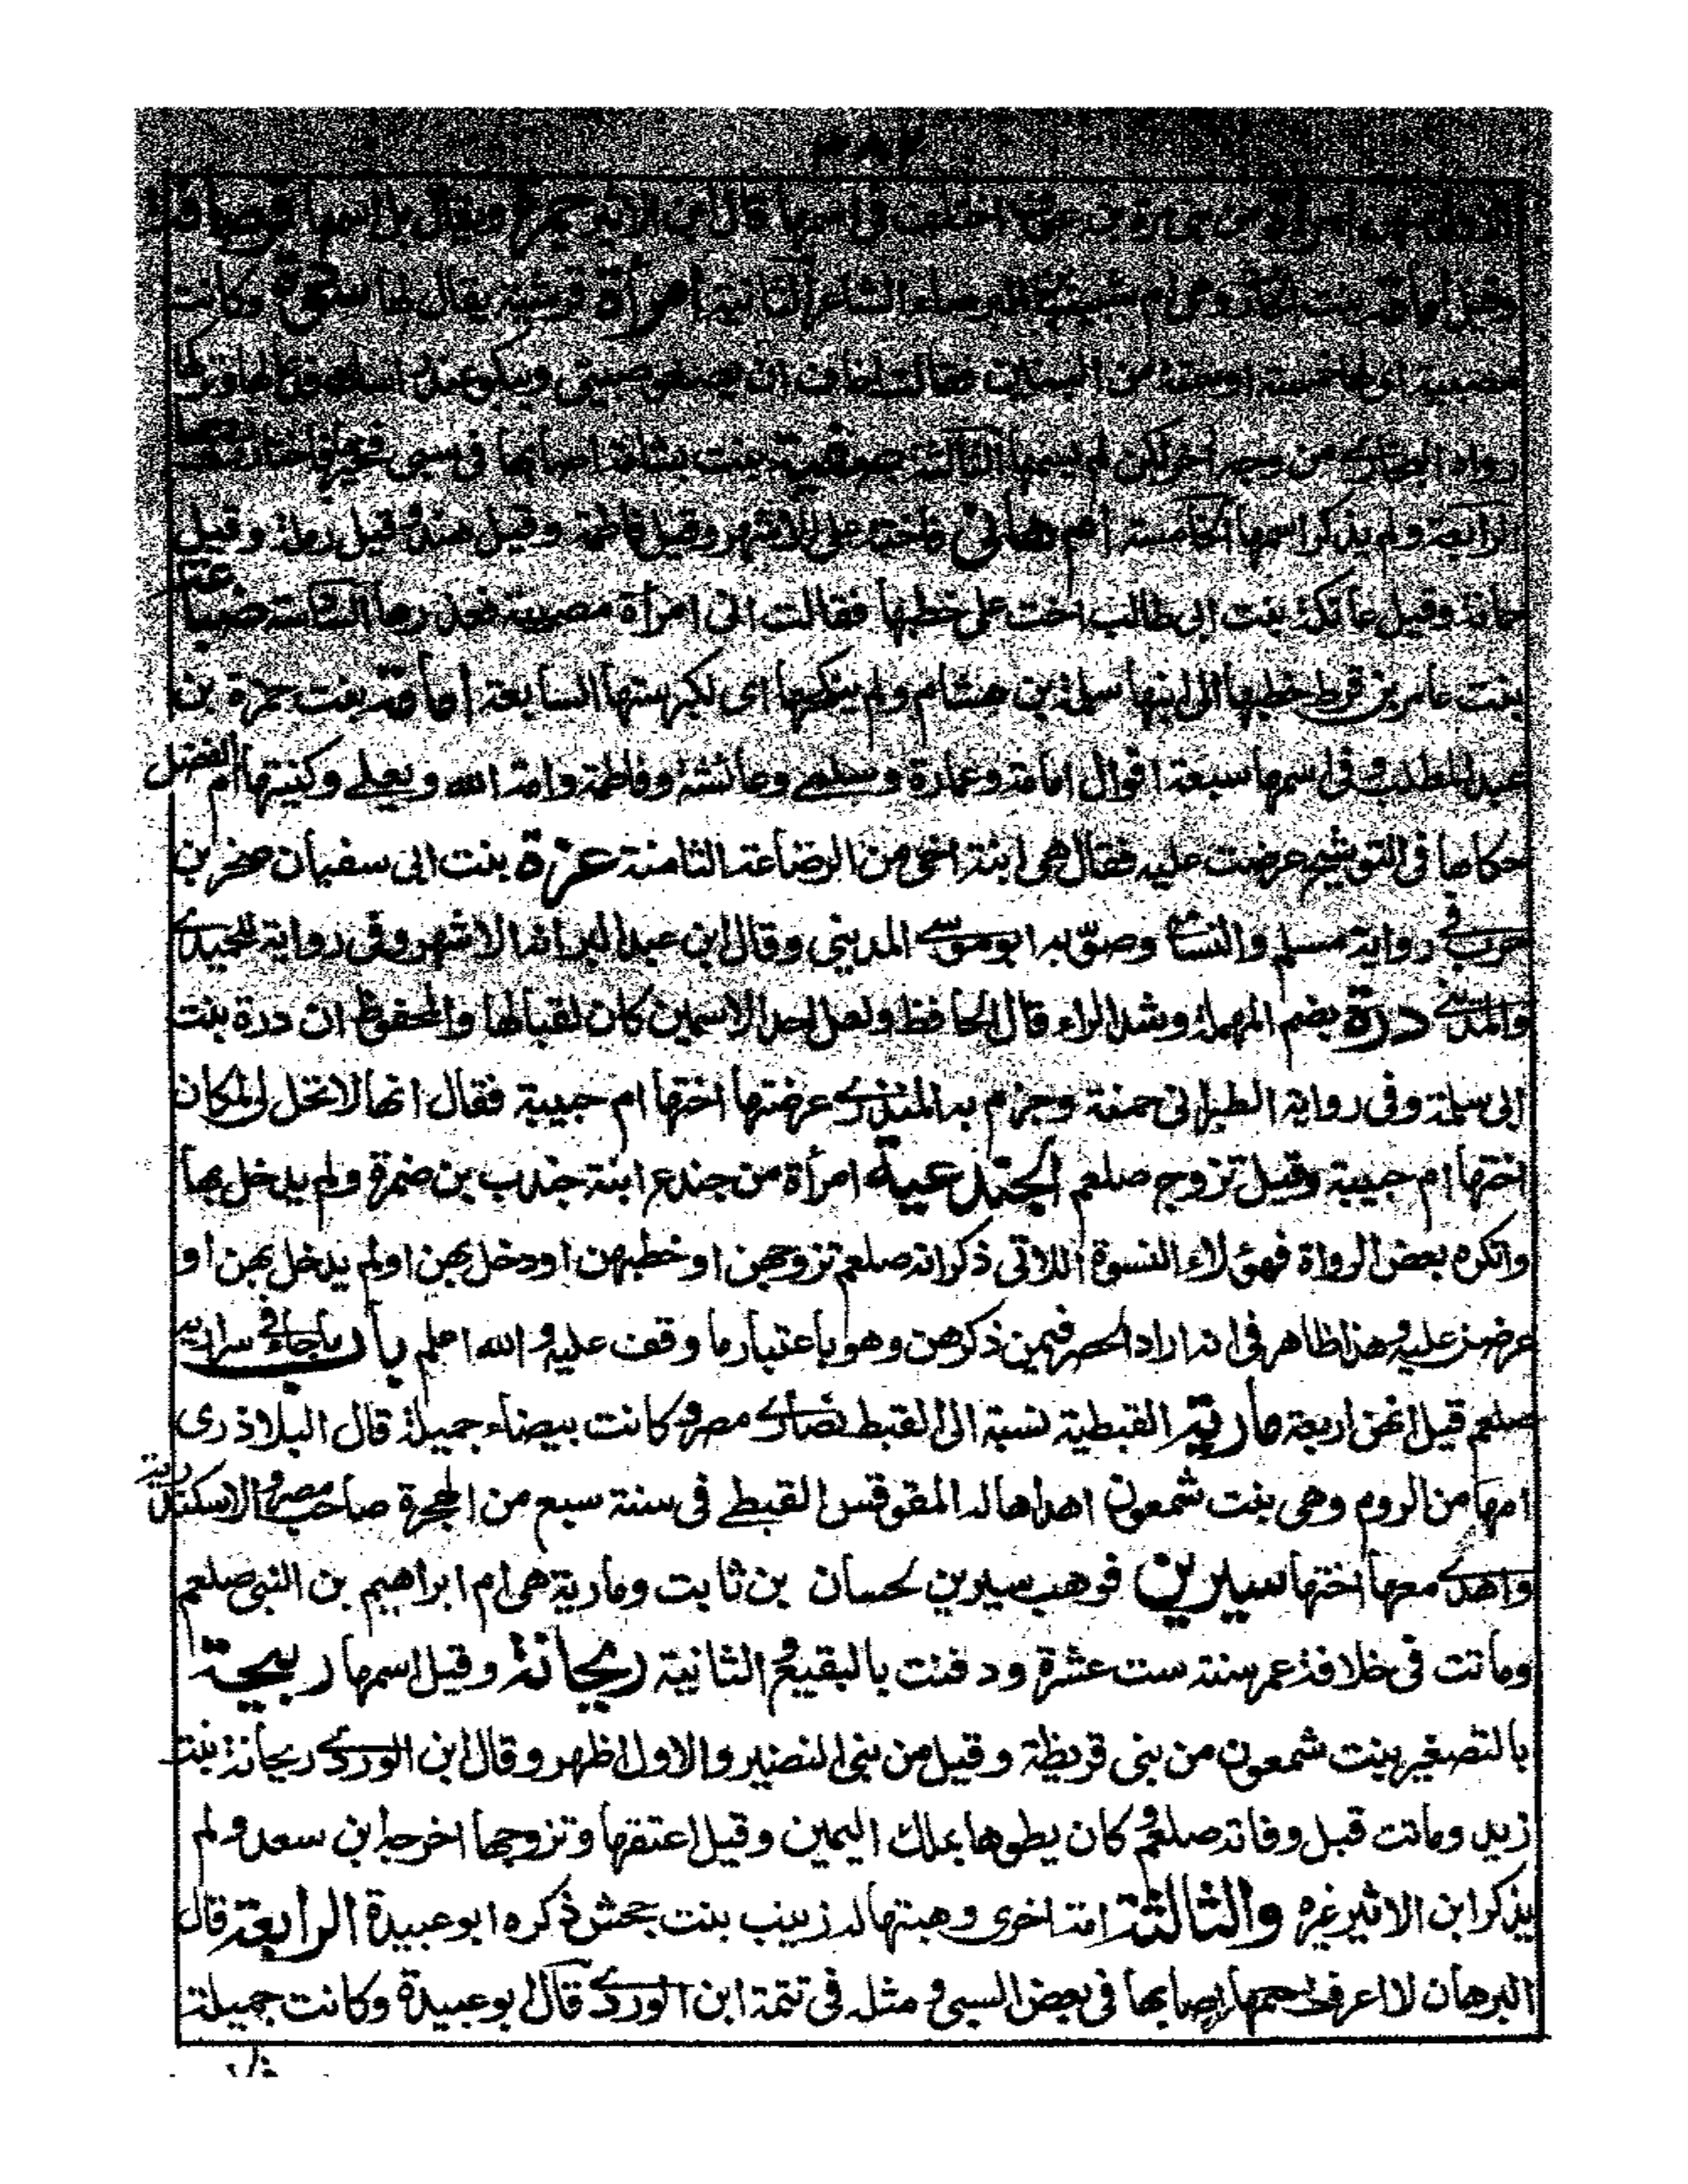 ٣٨٢
الاولى امرأة من بنى مرة بن عوف اختلف فى اسمها قال ابن الاثير جمرة ويقال بل اسمها قرصافة
وقيل امامة بنت الحارث وهى ام شبيب بن البرصاء الشاعر الثانية امرأة قرشية يقال لها سودة وكانت
مصبية اى لها خمسة او ستة من الصبيان فقالت اخاف ان يضغو صبيتى ويبكو عند رأسك فدعا لها وتركها
رواه من وجه اخر لكن لم يسمها الثالثة صفية بنت بشامة اصابها فى سبى فخيرها فاختارت زوجها
الرابعة ولم يذكر اسمها الخامسة ام هانئ فاختة على الاشهر وقيل فاطمة وقيل هند وقيل رملة وقيل
جمانة وقيل عاتكة بنت ابى طالب اخت على خطبها فقالت انى امرأة مصبية فعذرها السادسة ضباعة
بنت عامر بن قرط خطبها الى ابنها سلمة بن هشام ولم ينكحها اى لكبر سنها السابعة امامة بنت حمزة بن
عبد المطلب وفى اسمها سبعة اقوال امامة وعمارة وسلمى وعائشة وفاطمة وامة الله ويعلى وكنيتها ام الفضل
حكاها فى التوشيح عرضت عليه فقال هى ابنة اخى من الرضاعة الثامنة عزة بنت ابى سفيان صخر بن
حرب فى رواية مسلم والنسائى وصوّبه ابو موسى المدينى وقال ابن عبد البر انه الاشهر وفى رواية للحميدى
والمدنى درة بضم المهملة وشد الراء قال الحافظ ولعل احد الاسمين كان لقبا لها والمحفوظ ان درة بنت
ابى سلمة وفى رواية الطبرانى حمنة وجزم به المنذرى عرضتها اختها ام حبيبة فقال انها لا تحل لى لمكان
اختها ام حبيبة وقيل تزوج صلعم الجندعية امرأة من جندع ابنة جندب بن ضمرة ولم يدخل بها
وانكره بعض الرواة فهؤلاء النسوة اللاتى ذكر انه صلعم تزوجهن او خطبهن او دخل بهن او لم يدخل بهن او
عرضن عليه وهذا ظاهر فى انه اراد الحصر فيمن ذكرهن وهو باعتبار ما وقف عليه والله اعلم باب ما جاء فى سراريه
صلعم قيل انهن اربعة مارية القبطية نسبة الى القبط نصارى مصر وكانت بيضاء جميلة قال البلاذرى
امها من الروم وهى بنت شمعون اهداها له المقوقس القبطى فى سنة سبع من الهجرة صاحب مصر والاسكندرية
واهدى معها اختها سيرين فوهب سيرين لحسان بن ثابت ومارية هى ام ابراهيم بن النبى صلعم
وماتت فى خلافة عمر سنة ست عشرة ودفنت بالبقيع والثانية ريحانة وقيل اسمها ربيحة
بالتصغير بنت شمعون من بنى قريظة وقيل من بنى النضير والاول اظهر وقال ابن الوردى ريحانة بنت
زيد وماتت قبل وفاته صلعم وكان يطوها بملك اليمين وقيل اعتقها وتزوجها اخرجه ابن سعد ولم
يذكر ابن الاثير غيره والثالثة امة اخرى وهبتها له زينب بنت جحش ذكره ابو عبيدة الرابعة قال
البرهان لا اعرف اسمها اصابها فى بعض السبى ومثله فى تتمة ابن الوردى قال ابو عبيدة وكانت جميلة